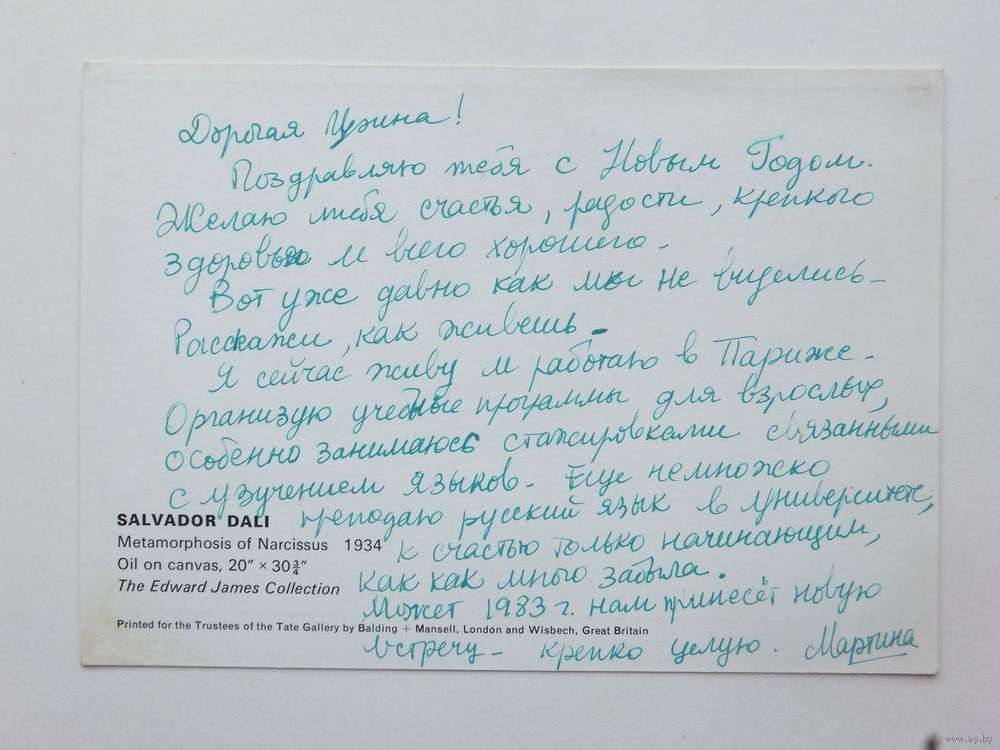 Дорогая Ирина!
Поздравляю тебя с Новым Годом.
Желаю тебя счастья, радости, крепкого
здоровья и всего хорошего.
Вот уже давно как мы не виделись.
Расскажи, как живёшь.
Я сейчас живу и работаю в Париже.
Организую учебные программы для взрослых,
особенно занимаюсь стажировками связанными
с изучением языков. Еще немножко
преподаю русский язык в университете,
к счастью только начинающим,
как как много забыла.
Может 1983 г. нам принесёт новую
встречу - крепко целую. Мартина
SALVADOR DALI
Metamorphosis of Narcissus 1934
Oil on canvas, 20" × 30¾"
The Edward James Collection
Printed for the Trustees of the Tate Gallery by Balding + Mansell, London and Wisbech, Great Britain
www.ay.by